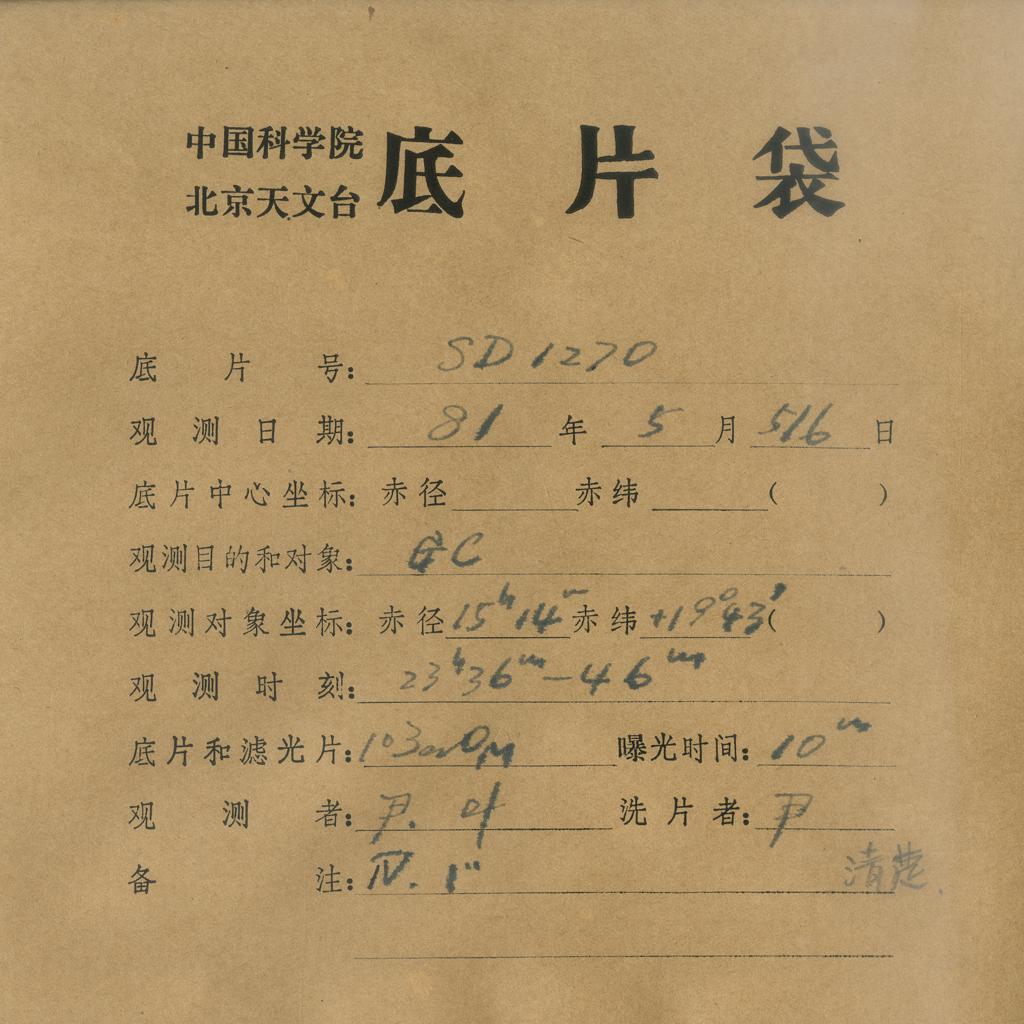 中国科学院
北京天文台 底片袋
底片号: SD1270
观测日期: 81年 5月 5/6日
底片中心坐标: 赤径 赤纬 ( )
观测目的和对象: GC
观测对象坐标: 赤径 15h14m 赤纬 +19°43′ ( )
观测时刻: 23h36m—46m
底片和滤光片: 103aO 曝光时间: 10m
观测者: 尹. 叶 洗片者: 尹
备注: Ⅳ. 1"
清楚.